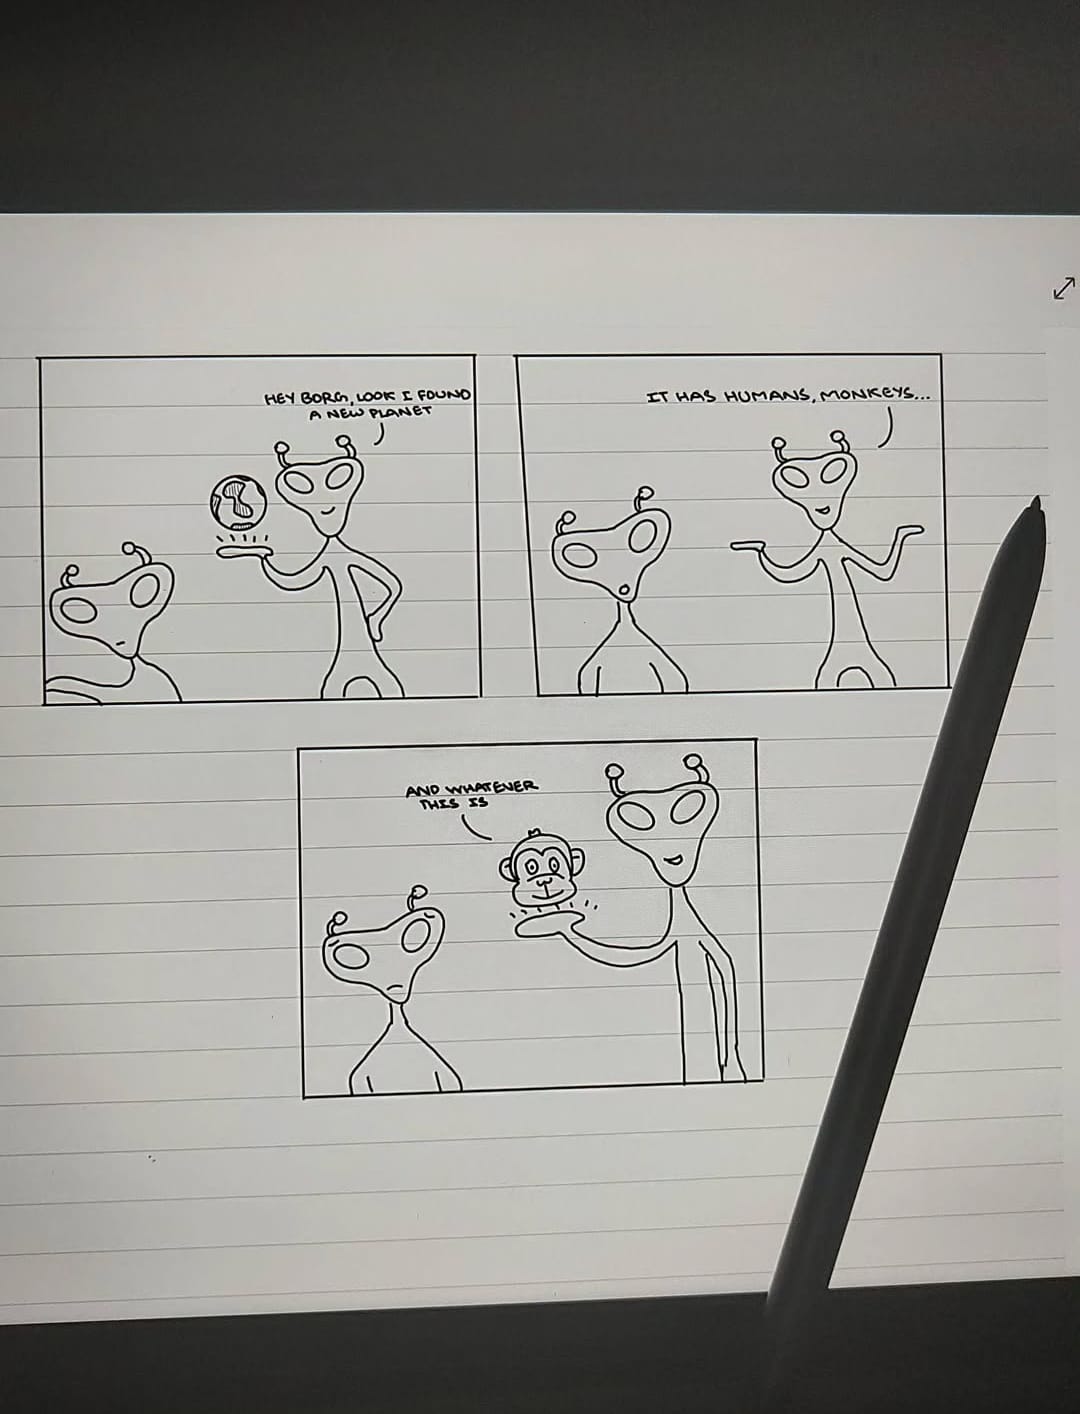 HEY BORG, LOOK I FOUND
A NEW PLANET
IT HAS HUMANS, MONKEYS...
AND WHATEVER
THIS IS